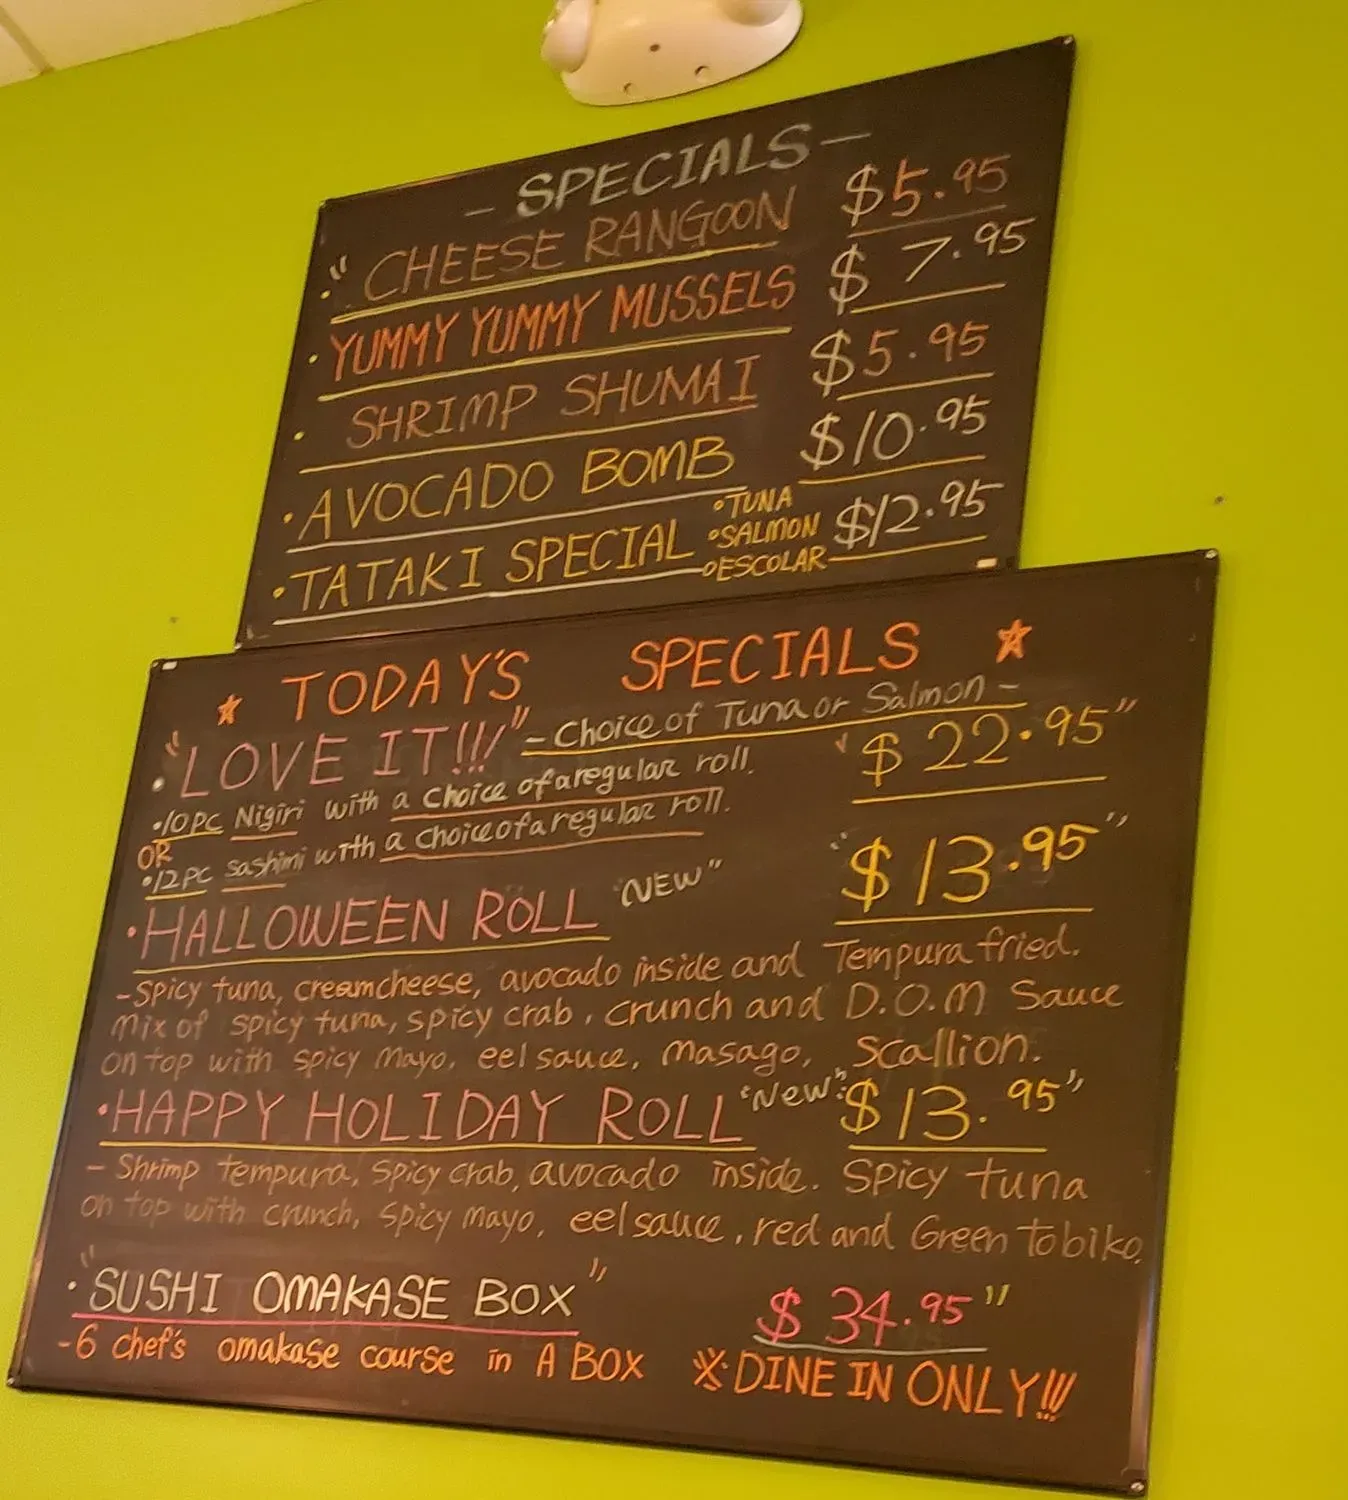 - SPECIALS -
"CHEESE RANGOON $5.95
• YUMMY YUMMY MUSSELS $7.95
• SHRIMP SHUMAI $5.95
• AVOCADO BOMB $10.95
• TATAKI SPECIAL •TUNA •SALMON •ESCOLAR $12.95
☆ TODAY'S SPECIALS ☆
• "LOVE IT!!!" - Choice of Tuna or Salmon - "$22.95"
•10PC Nigiri with a choice of a regular roll.
OR
•12PC Sashimi with a choice of a regular roll.
• HALLOWEEN ROLL "NEW" "$13.95"
- Spicy tuna, creamcheese, avocado inside and Tempura fried.
Mix of spicy tuna, spicy crab, crunch and D.O.M Sauce
on top with spicy mayo, eel sauce, masago, scallion.
• HAPPY HOLIDAY ROLL "New" "$13.95"
- Shrimp tempura, spicy crab, avocado inside. Spicy tuna
on top with crunch, spicy mayo, eel sauce, red and Green tobiko.
• "SUSHI OMAKASE BOX" $34.95"
- 6 chef's omakase course in A BOX ※ DINE IN ONLY!!!